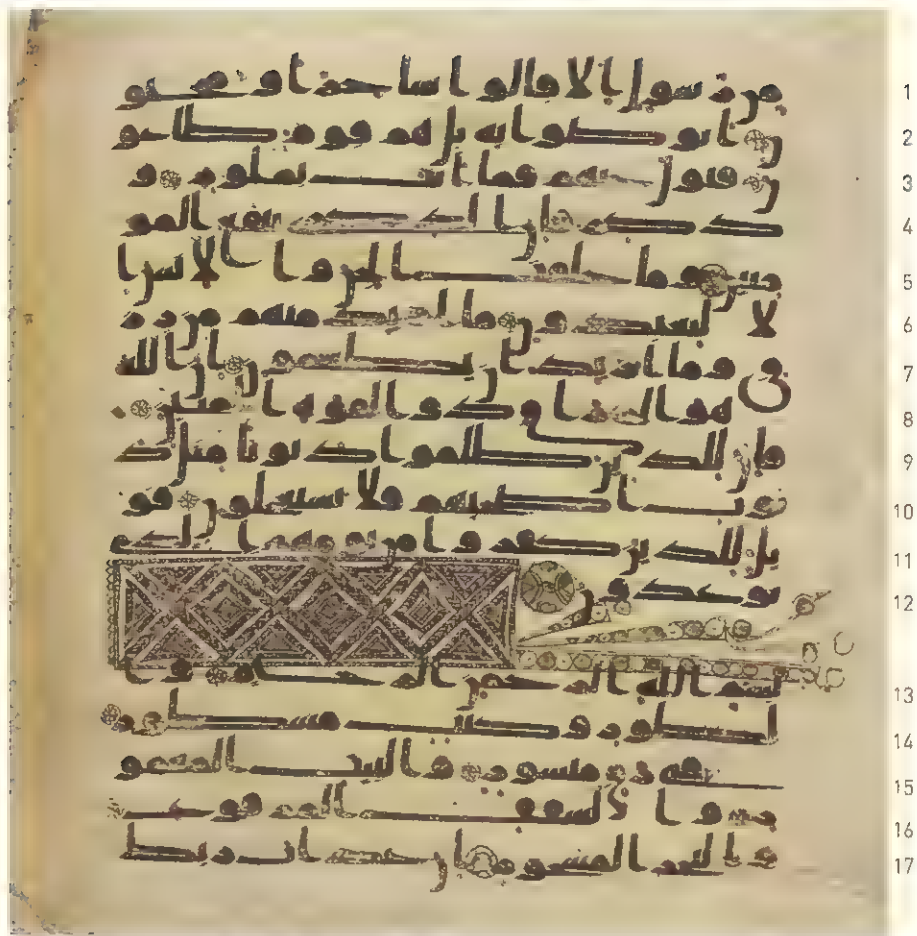 من رسول الا قالوا ساحر او مجنو
ن اتواصوا به بل هم قوم طاغو
ن فتول عنهم فما انت بملوم و
ذكر فان الذكرى تنفع المو
منين وما خلقت الجن والانس ا
لا ليعبدون ما اريد منهم من رز
ق وما اريد ان يطعمون ان الله
هو الرزاق ذو القوة المتين
فان للذين ظلموا ذنوبا مثل ذ
نوب اصحبهم فلا يستعجلون فو
يل للذين كفروا من يومهم الذى
يوعدون
بسم الله الرحمن الرحيم وا
لطور وكتب مسطور
فى رق منشور والبيت المعمو
ر والسقف المرفوع
والبحر المسجور ان عذاب ربك
1
2
3
4
5
6
7
8
9
10
11
12
13
14
15
16
17